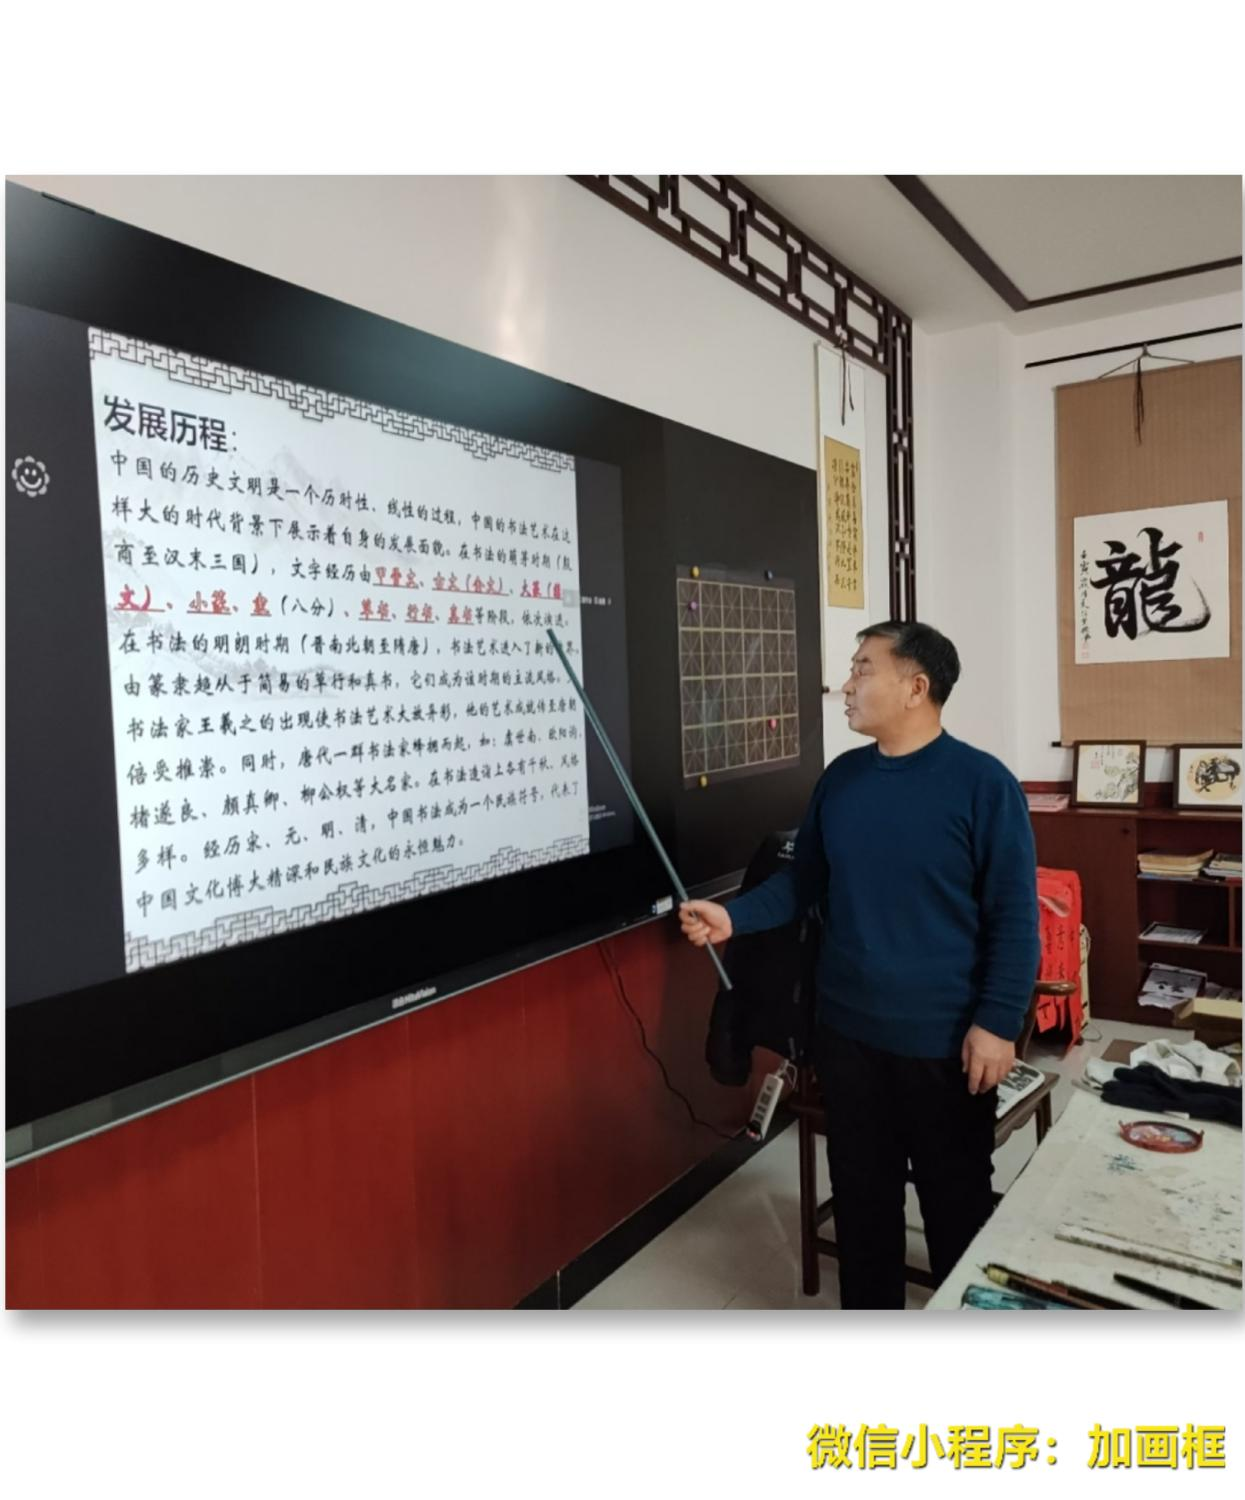 发展历程：
中国的历史文明是一个历时性、线性的过程，中国的书法艺术在这
样大的时代背景下展示着自身的发展面貌。在书法的萌芽时期（殷
商至汉末三国），文字经历由甲骨文、古文（金文）、大篆（籀
文）、小篆、隶（八分）、草书、行书、真书等阶段，依次演进。
在书法的明朗时期（晋南北朝至隋唐），书法艺术进入了新的境界。
由篆隶趋从于简易的草行和真书，它们成为该时期的主流风格。
书法家王羲之的出现使书法艺术大放异彩，他的艺术成就传至唐朝
倍受推崇。同时，唐代一群书法家蜂拥而起，如：虞世南、欧阳询、
楮遂良、颜真卿、柳公权等大名家。在书法造诣上各有千秋、风格
多样。经历宋、元、明、清，中国书法成为一个民族符号，代表了
中国文化博大精深和民族文化的永恒魅力。
龍
微信小程序：加画框